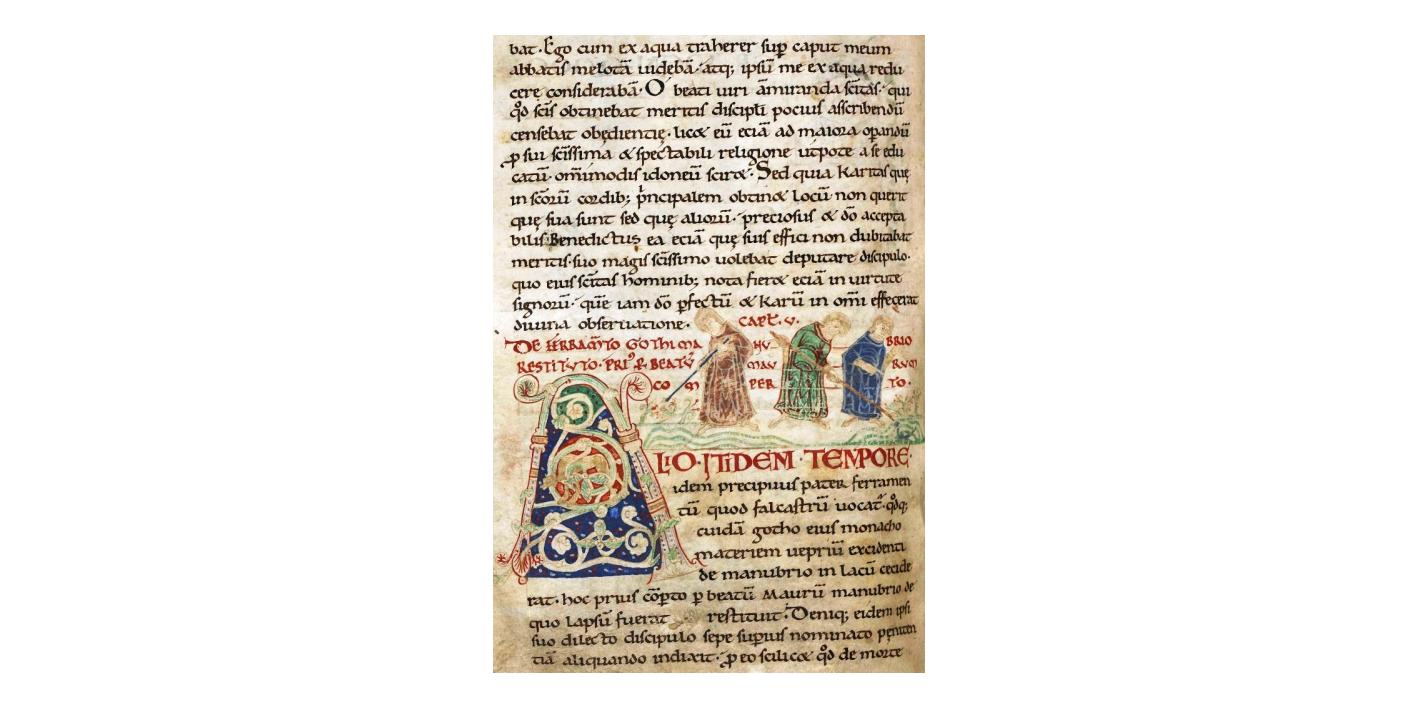 bat. Ego cum ex aqua traherer sup̄ caput meum
abbatis melotā uidebā. atq; ipsū me ex aqua redu
cere considerabā. O beati uiri āmiranda sc̄itas. qui
qd̄ sc̄is obtinebat meritis discipli pocius asscribendū
censebat obędientię. licet eū eciā ad maiora opandū
p sui sc̄issima & spectabili religione utpote a se edu
catū. om̄imodis idoneū sciret. Sed quia karitas quę
in sc̄orū cordib; pͥncipalem obtinet locū non querit
quę sua sunt sed quę aliorū. preciosus & dō accepta
bilis Benedictus ea eciā quę suis effici non dubitabat
meritis. suo magis sc̄issimo uolebat deputare discipulo.
quo eius sc̄itas hominib; nota fieret eciā in uirtute
signorū. quē iam dō p̄fectū & karū in om̄i effecerat
diuina obseruatione. CAPT. V.
DE FERRAM̄TO GOTHI MA NU BRIO
RESTITUTO. PRI9 P BEATV̄ MAU RUM
CO M PER TO.
ALIO ITIDEM TEMPORE.
idem precipuus pater ferramen
tū quod falcastrū uocat᷑. qd̄q;
cuidā gotho eius monacho
materiem uepriū excidenti
de manubrio in lacū cecide
rat. hoc prius cōpto p beatū Maurū manubrio de
quo lapsū fuerat restituit. Deniq; eidem ipsi
suo dilecto discipulo sepe supius nominato peniten
tiā aliquando indixit. p eo scilicet qd̄ de morte